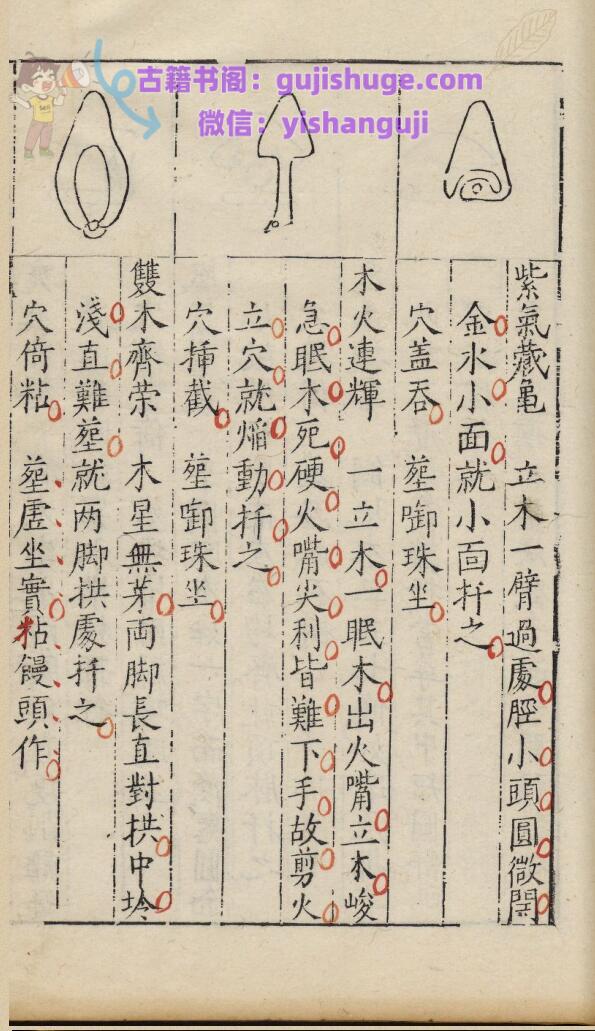 古籍书阁：gujishuge.com
微信：yishanguji
紫氣藏亀　立木一臂過處脛小頭圓微開
金水小面就小面扦之
穴盖吞　塟啣珠坐
木火連輝　一立木一眠木出火嘴立木峻
急眠木死硬火嘴尖利皆難下手故剪火
立穴就熖動扦之
穴挿截　塟啣珠坐
雙木齊荣　木星無芽両脚長直對拱中坽
淺直難塟就两脚拱處扦之
穴倚粘　塟虚坐實粘饅頭作